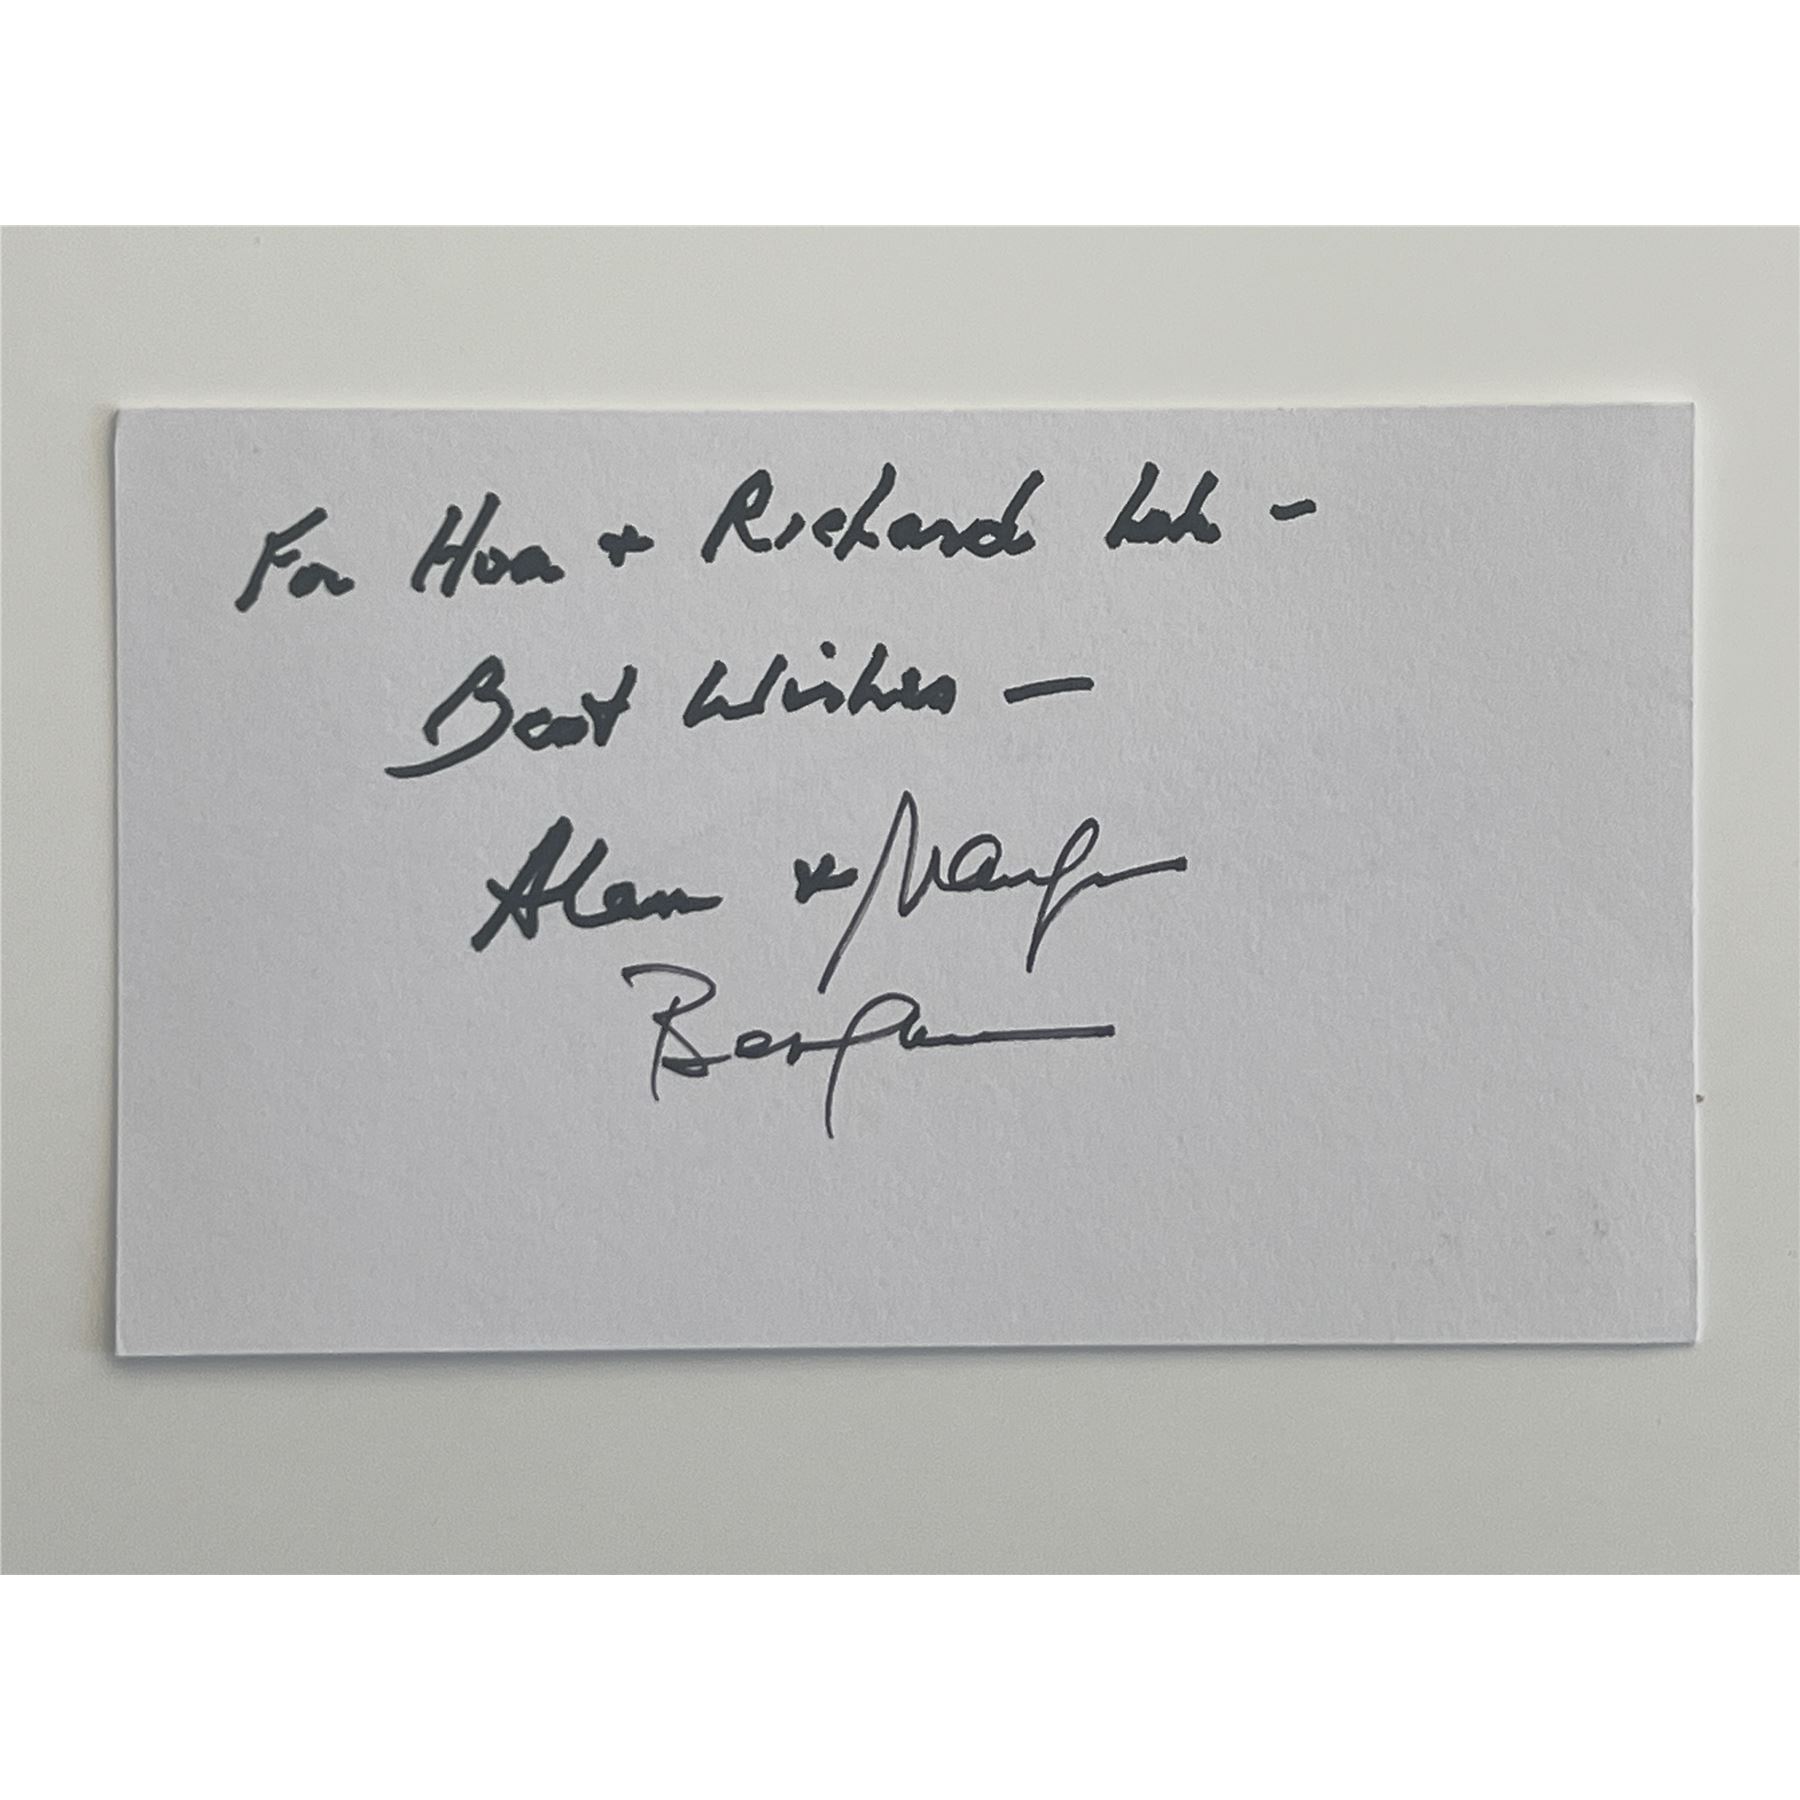 For Hoa + Richard Loh -
Best Wishes -
Alan + Marilyn
Bergman